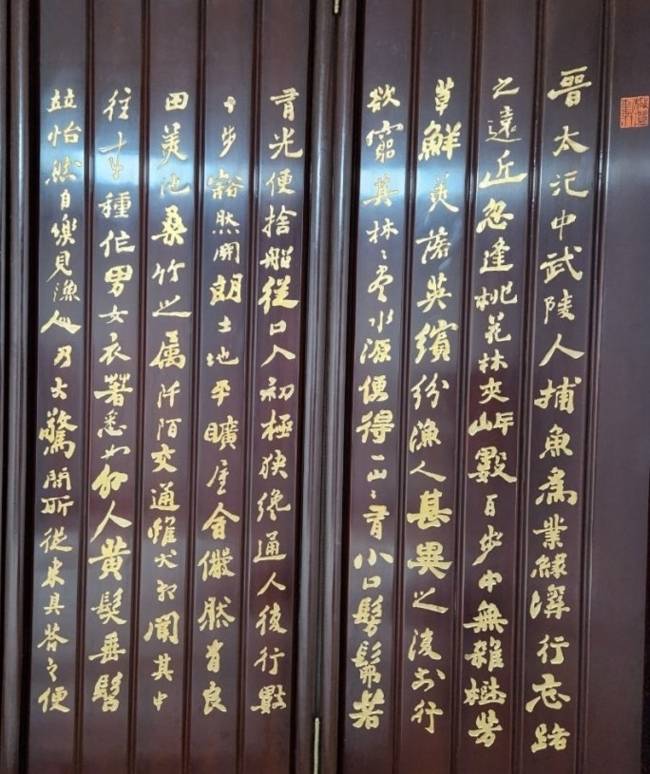 晋太元中武陵人捕魚為業緣溪行忘路
之遠近忽逢桃花林夾岸數百步中無雜樹芳
草鮮美落英繽紛漁人甚異之復前行
欲窮其林林盡水源便得一山山有小口髣髴若
有光便捨船從口入初極狹纔通人復行數
十步豁然開朗土地平曠屋舍儼然有良
田美池桑竹之属阡陌交通雞犬相聞其中
往來種作男女衣著悉如外人黄髮垂髫
並怡然自樂見漁人乃大驚問所從來具答之便